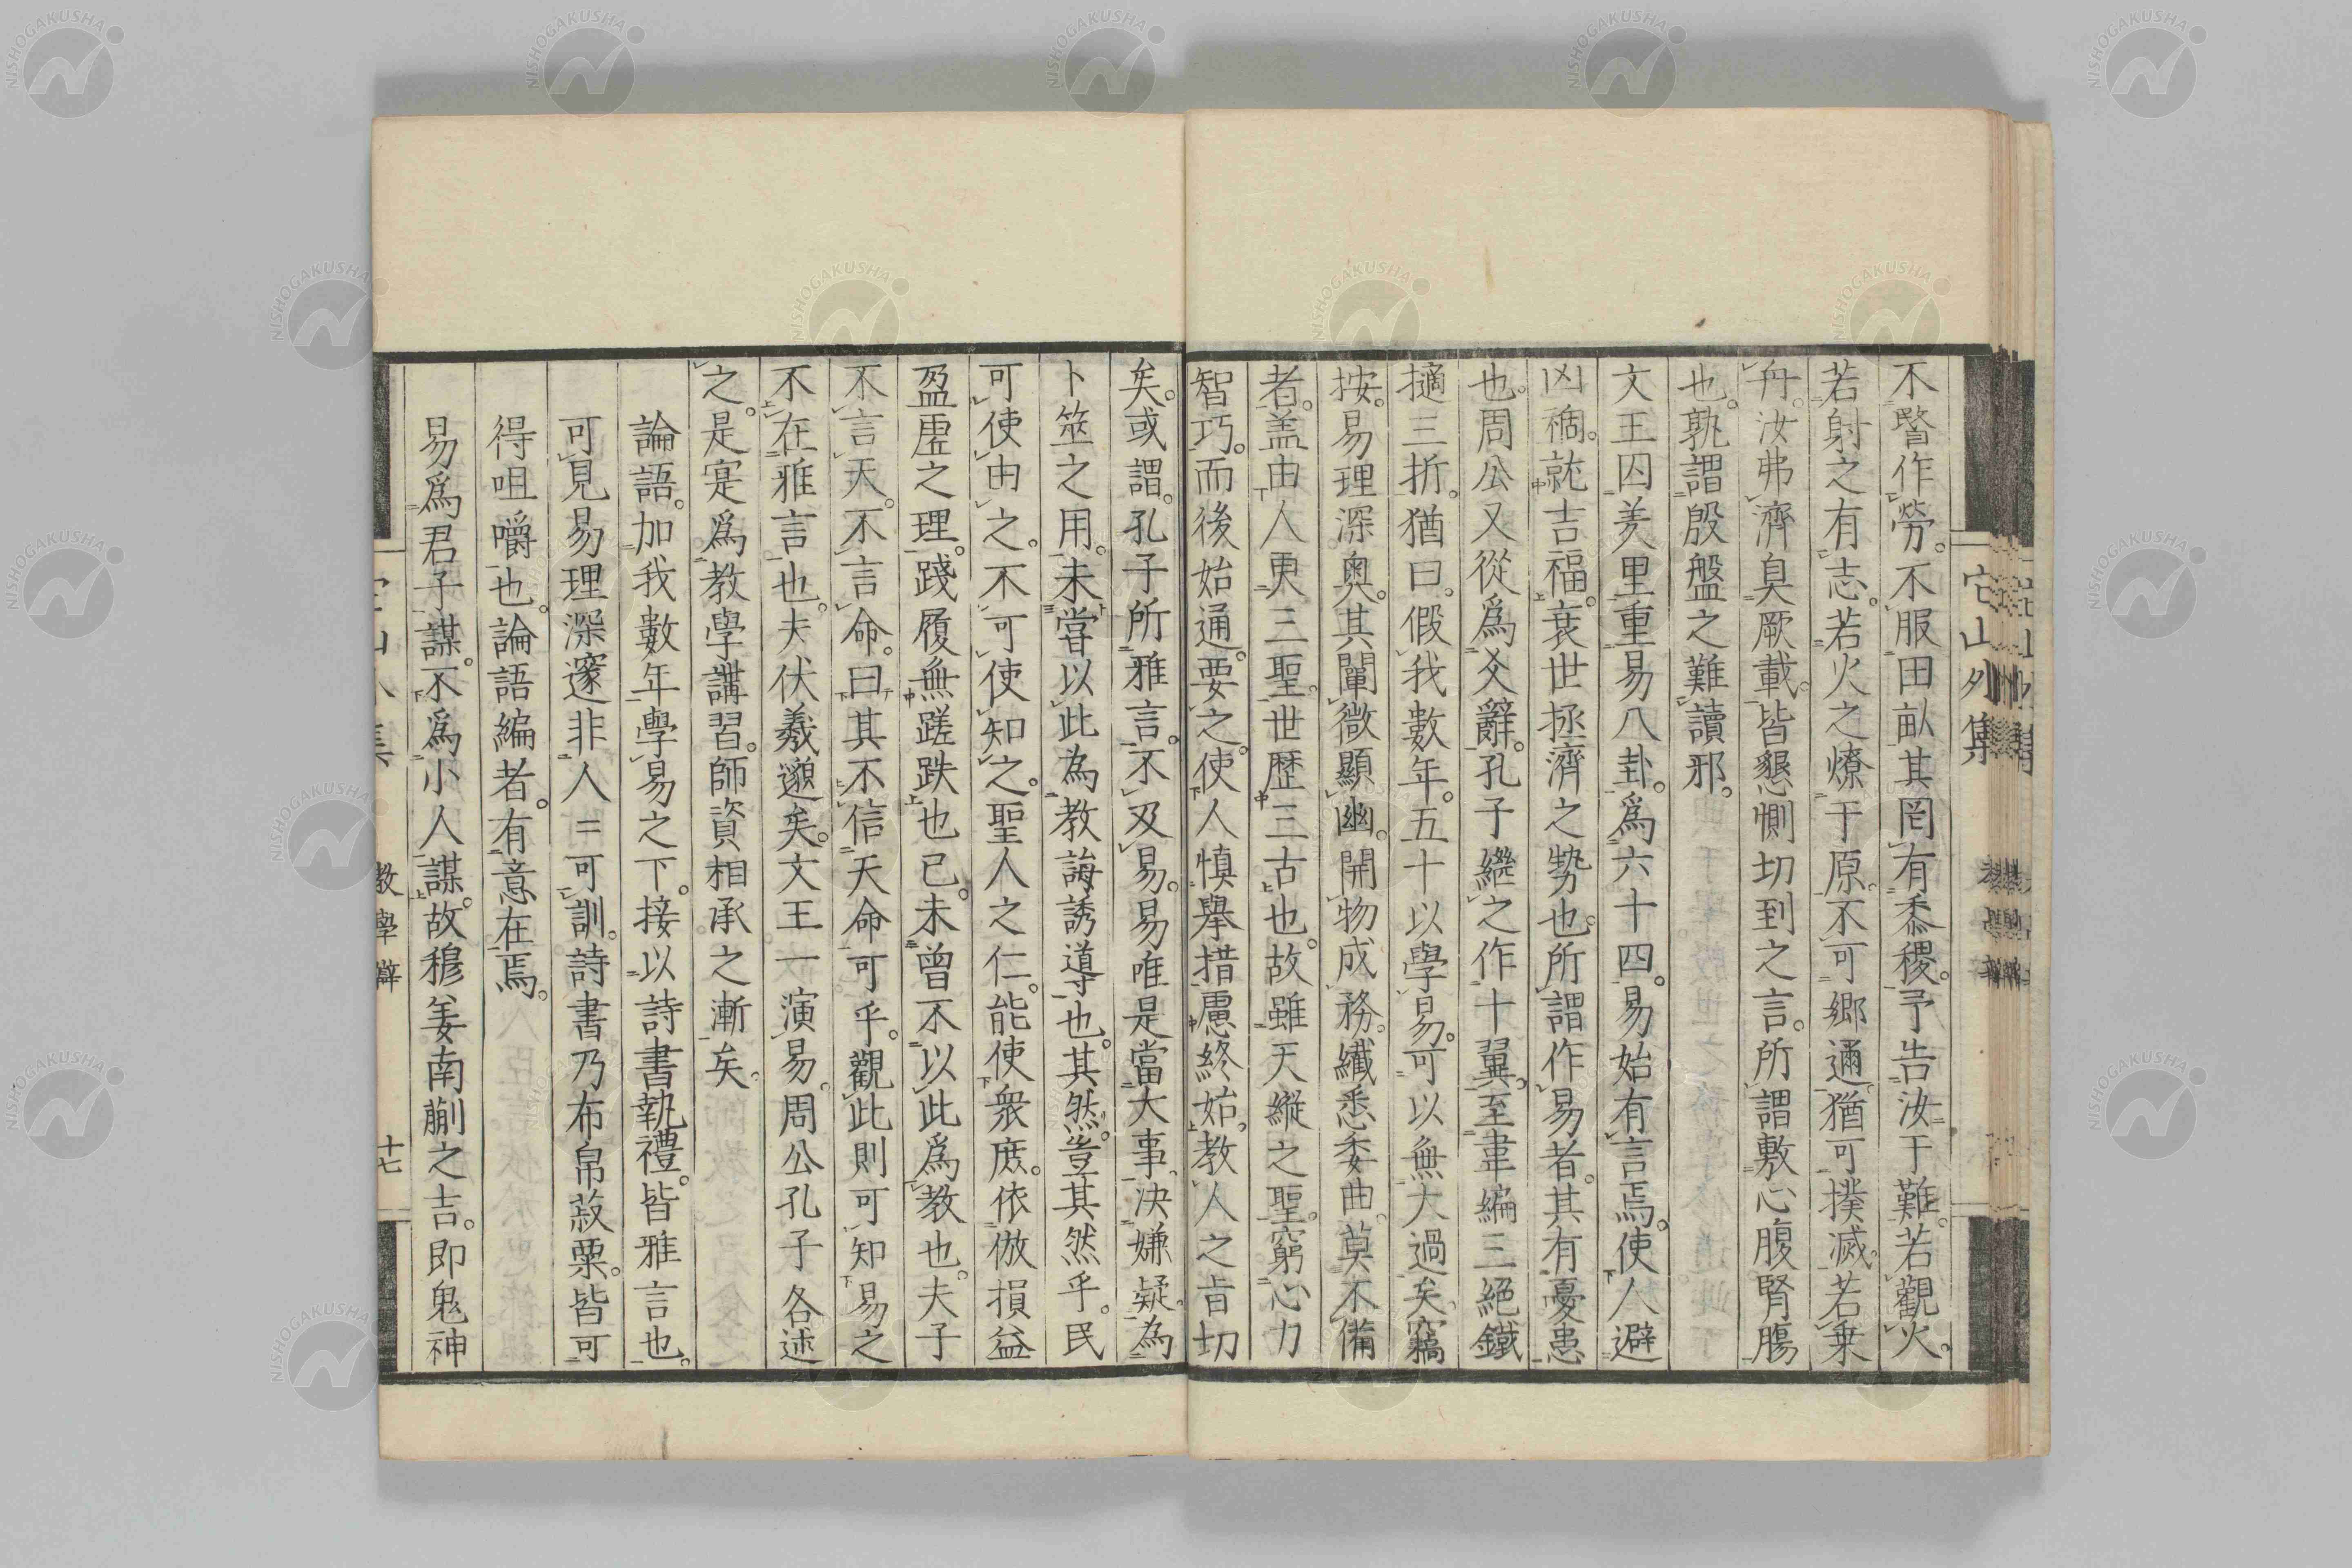 不昬作勞。不服田畝其罔有黍稷。予告汝于難。若觀火。
若射之有志。若火之燎于原。不可郷邇。猶可撲滅。若乗
舟。汝弗濟臭厥載。皆懇惻切到之言。所謂敷心腹腎腸
也。孰謂殷盤之難讀邪。
文王囚羑里重易八卦。爲六十四。易始有言焉。使人避
凶禍。就吉福。衰世拯濟之勢也。所謂作易者。其有憂患
也。周公又從爲爻辭。孔子繼之作十翼。至韋編三絕鐵
擿三折。猶曰。假我數年。五十以學易。可以無大過矣。竊
按。易理深奥。其闡微顯幽。開物成務。纖悉委曲。莫不備
者。盖由人更三聖。世歴三古也。故雖天縦之聖。窮心力
智巧。而後始通。要之。使人慎舉措慮終始。教人之旨切
矣。或謂。孔子所雅言。不及易。易唯是當大事、決嫌疑。為
卜筮之用。未嘗以此為教誨誘導也。其然。豈其然乎。民
可使由之。不可使知之。聖人之仁。能使衆庶。依倣損益
盈虚之理。踐履無蹉跌也已。未曾不以此爲教也。夫子
不言天。不言命。曰其不信天命可乎。觀此則可知易之
不在雅言也。夫伏羲邈矣。文王一演易。周公孔子各述
之。是寔爲教學講習。師資相承之漸矣。
論語。加我數年學易之下。接以詩書執禮。皆雅言也。
可見易理深邃非人〻可訓。詩書乃布帛菽粟。皆可
得咀嚼也。論語編者。有意在焉。
易爲君子謀。不爲小人謀。故穆姜南蒯之吉。即鬼神
它山外集
教學辯
十七
NISHOGAKUSHA